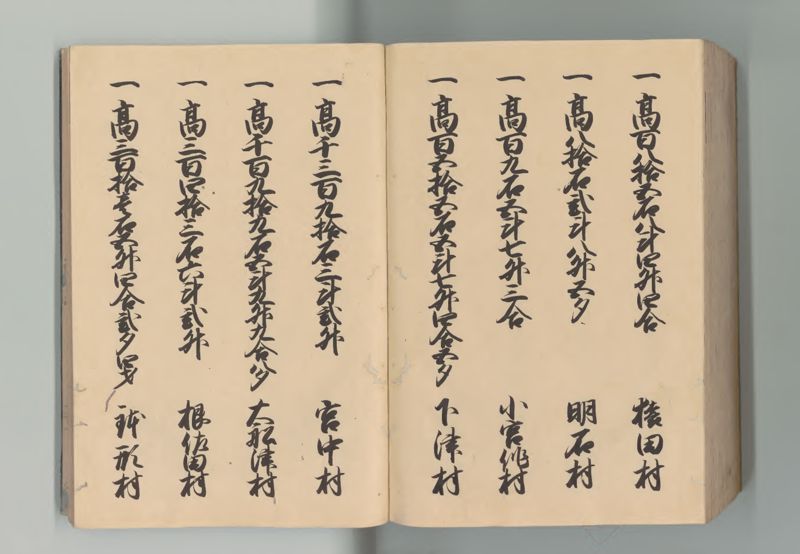 一高百八拾五石八斗四升四合 猿田村
一高八拾石弐斗八升五夕 明石村
一高百九石五斗七升三合 小宮作村
一高百五拾五石五斗七升四合五夕 下津村
一高千三百九拾石三斗弐升 宮中村
一高千百九拾九石五斗九升九合八夕 大船津村
一高三百四拾三石六斗弐升 根佐田村
一高三百拾壱石五升四合弐夕四才 鉢形村